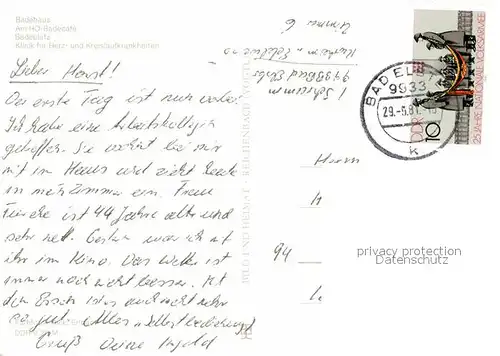 Badehaus
Am HO-Badecafé
Badeplatz
Klinik für Herz- und Kreislaufkrankheiten
Lieber Horst!
Der erste Tag ist nun vorbei.
Ich habe eine Arbeitskollegin
getroffen. Sie wohnt bei mir
mit im Haus und zieht heute
in mein Zimmer ein. Frau
ist 44 Jahre alt und
sehr nett. Gestern war ich mit
ihr im Kino. Das Wetter ist
immer noch nicht besser. Mit
dem Essen ist es auch nicht sehr
so gut. Alles Selbstbedienung
Gruß Deine Ingrid
BILD UND HEIMAT REICHENBACH
Zimmer 6
9933 Bad Elster
BAD ELSTER
9933
29.-5.81
k
10
DDR
25 JAHRE NATIONALE VOLKSARMEE
Herrn
H
94
L
privacy protection
Datenschutz